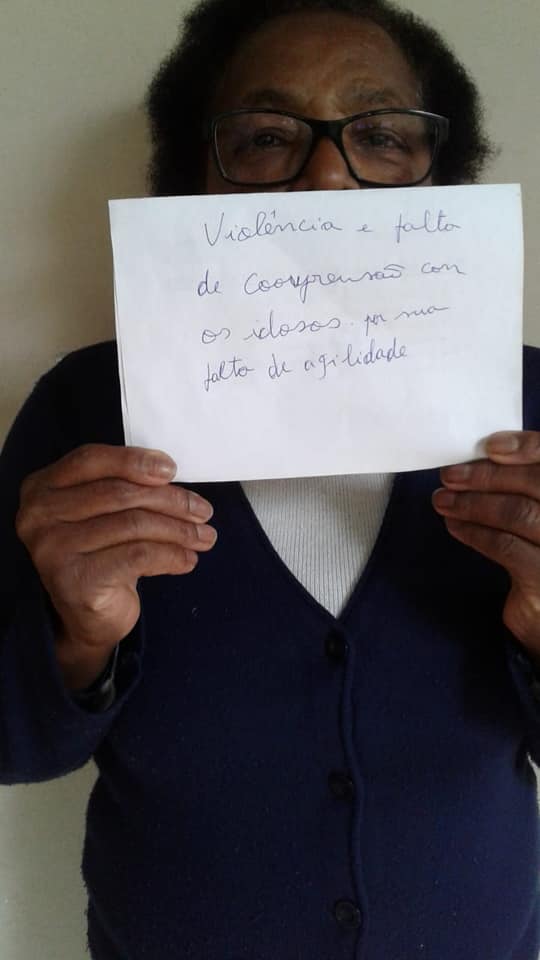 Violência e falta
de Coomprensão con
os idosos. por sua
falta de agilidade